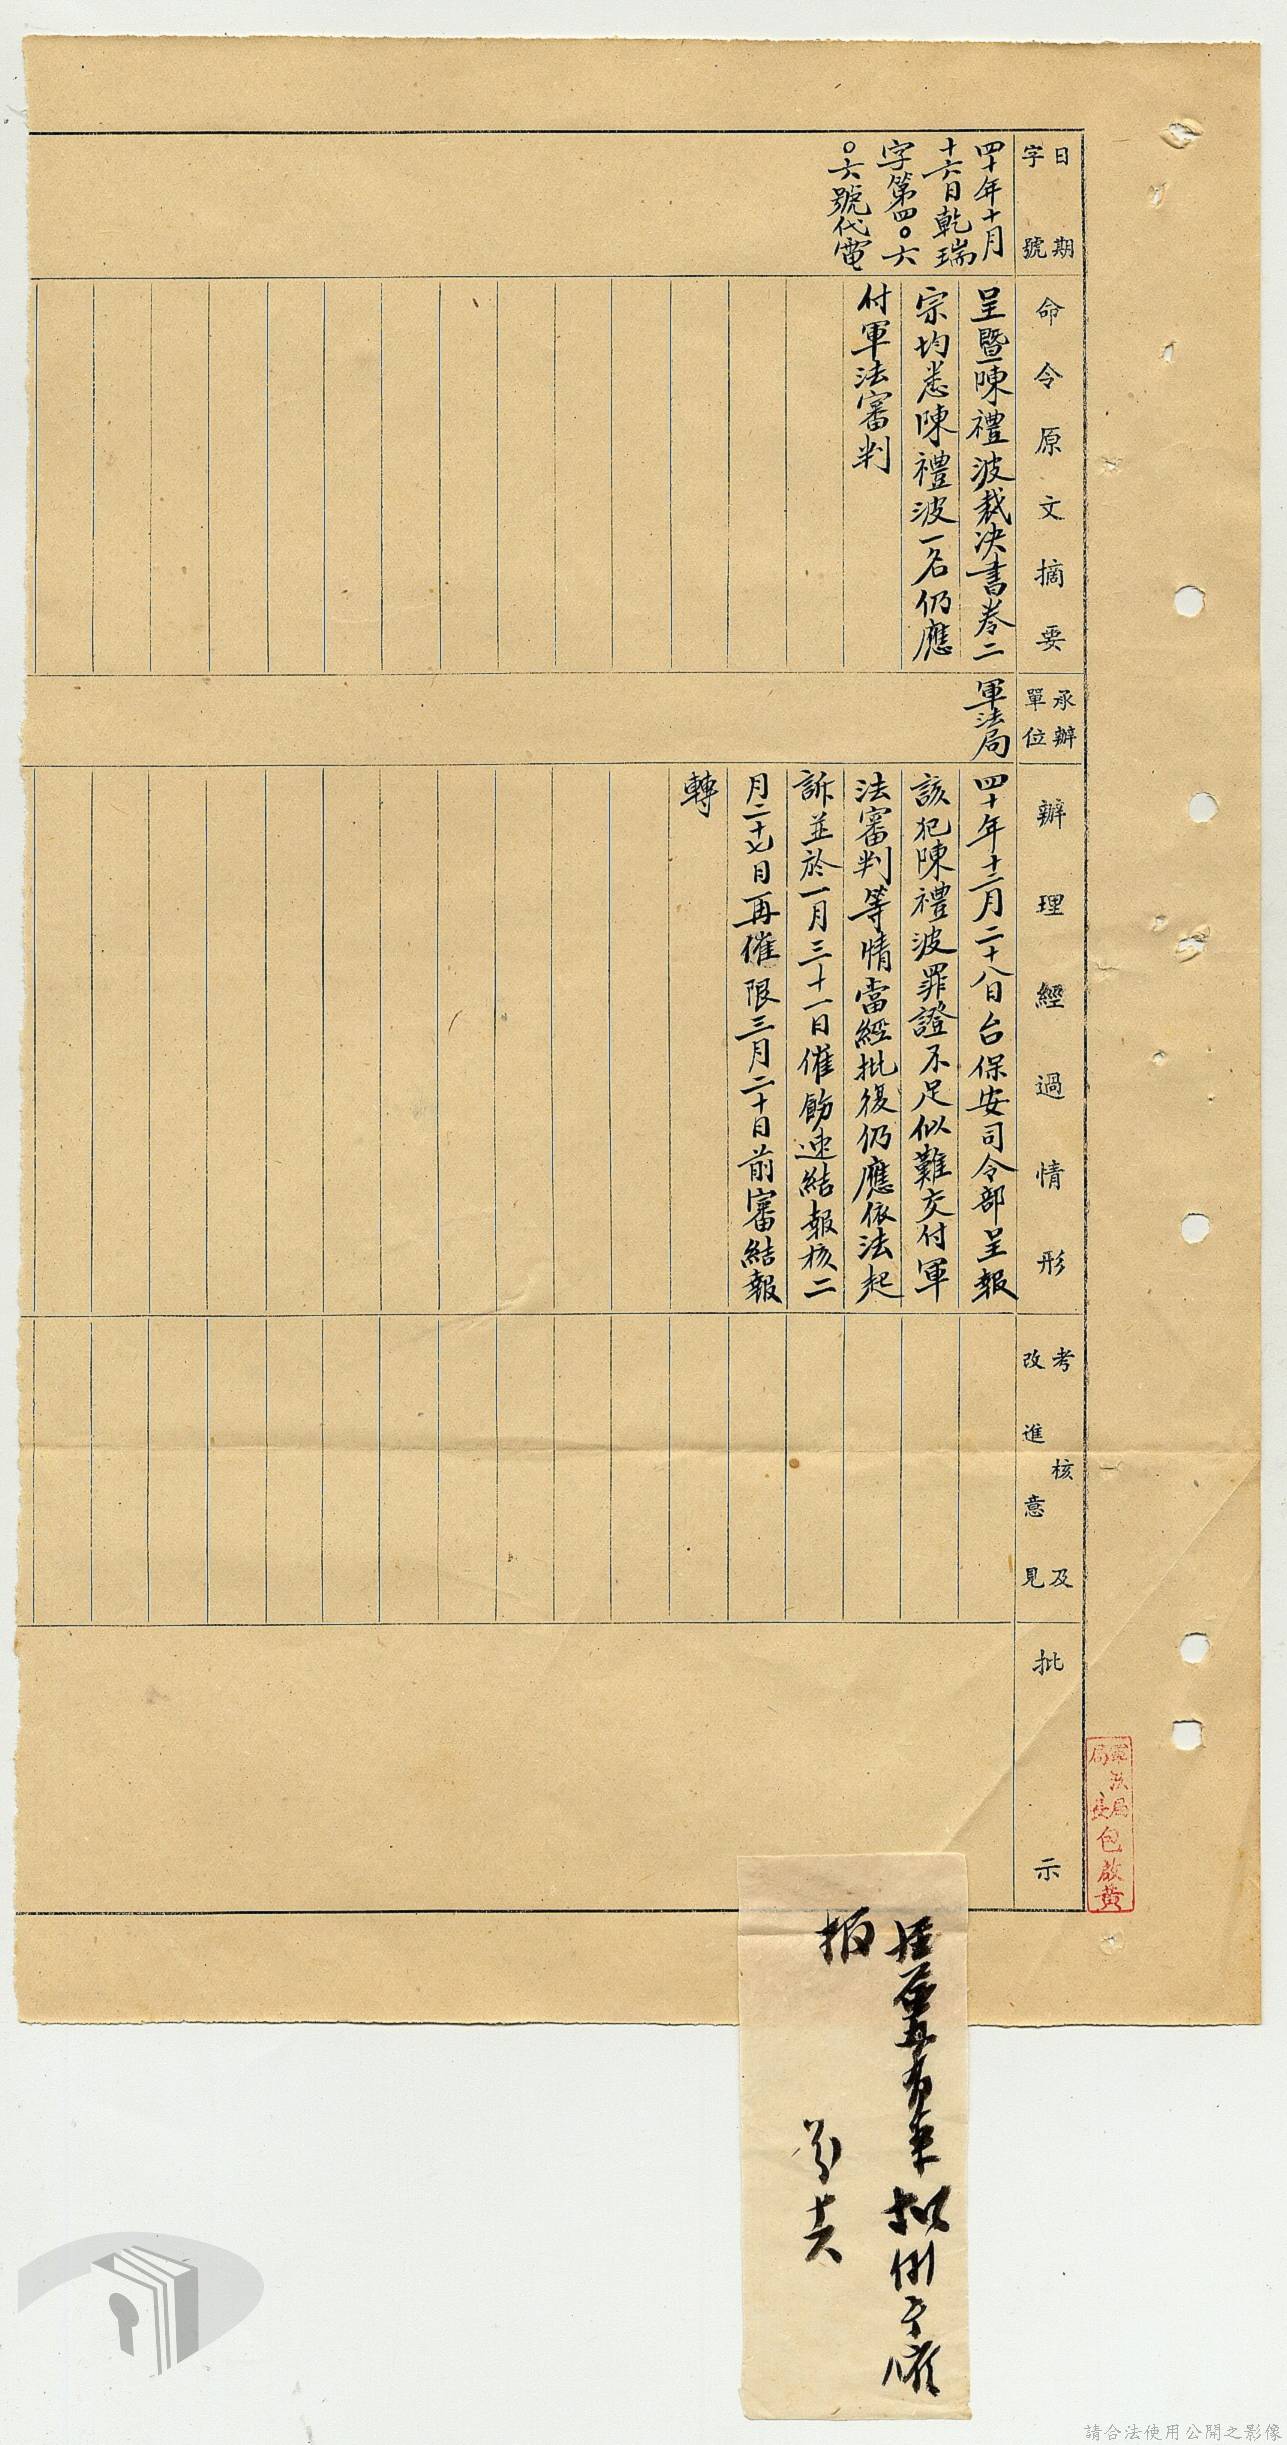 日期
字號
命令原文摘要
承辦
單位
辦理經過情形
考核及
改進意見
批示
四十年十月
十六日乾瑞
字第四〇六
〇六號代電
呈暨陳禮波裁決書卷二
宗均悉陳禮波一名仍應
付軍法審判
軍法局
四十年十二月二十八日台保安司令部呈報
該犯陳禮波罪證不足似難交付軍
法審判等情當經批復仍應依法起
訴並於一月三十一日催飭速結報核二
月二十七日再催限三月二十日前審結報
轉
軍法局
局長包啟黃
報
請合法使用公開之影像